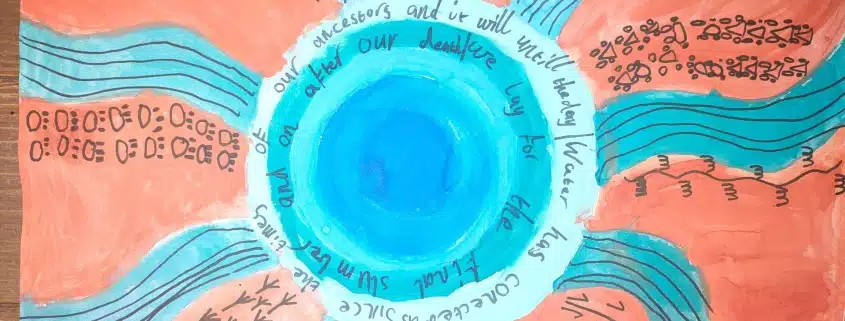 Water has conected us since the times of our ancestors and it will untill the day/
we lay for the final slumber and on after our death/